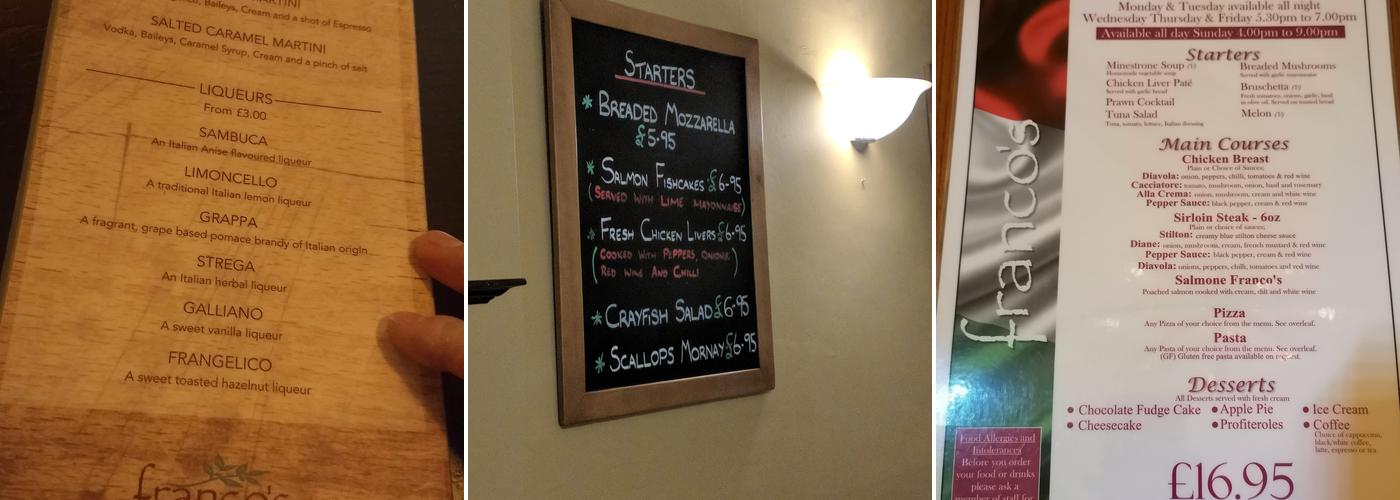 MARTINI
Baileys, Cream and a shot of Espresso
SALTED CARAMEL MARTINI
Vodka, Baileys, Caramel Syrup, Cream and a pinch of salt
LIQUEURS
From £3.00
SAMBUCA
An Italian Anise flavoured liqueur
LIMONCELLO
A traditional Italian lemon liqueur
GRAPPA
A fragrant, grape based pomace brandy of Italian origin
STREGA
An Italian herbal liqueur
GALLIANO
A sweet vanilla liqueur
FRANGELICO
A sweet toasted hazelnut liqueur
franco's
STARTERS
* BREADED MOZZARELLA
£5.95
* SALMON FISHCAKES £6-95
(SERVED WITH LIME MAYONNAISE)
* FRESH CHICKEN LIVERS £6-95
(COOKED WITH PEPPERS, ONIONS,
RED WINE AND CHILLI)
* CRAYFISH SALAD £6-95
* SCALLOPS MORNAY £6-95
Monday & Tuesday available all night
Wednesday Thursday & Friday 5.30pm to 7.00pm
Available all day Sunday 4.00pm to 9.00pm
franco's
Starters
Minestrone Soup (V)
Homemade vegetable soup
Chicken Liver Paté
Served with garlic bread
Prawn Cocktail
Tuna Salad
Tuna, tomato, lettuce, Italian dressing
Breaded Mushrooms
Served with garlic mayonnaise
Bruschetta (V)
Fresh tomatoes, onions, garlic, basil
in olive oil. Served on toasted bread
Melon (V)
Main Courses
Chicken Breast
Plain or Choice of Sauces;
Diavola: onion, peppers, chilli, tomatoes & red wine
Cacciatore: tomato, mushroom, onion, basil and rosemary
Alla Crema: onion, mushrooms, cream and white wine
Pepper Sauce: black pepper, cream & red wine
Sirloin Steak - 6oz
Plain or choice of sauces;
Stilton: creamy blue stilton cheese sauce
Diane: onion, mushroom, cream, french mustard & red wine
Pepper Sauce: black pepper, cream & red wine
Diavola: onions, peppers, chilli, tomatoes and red wine
Salmone Franco's
Poached salmon cooked with cream, dill and white wine
Pizza
Any Pizza of your choice from the menu. See overleaf.
Pasta
Any Pasta of your choice from the menu. See overleaf.
(GF) Gluten free pasta available on request.
Desserts
All Desserts served with fresh cream
• Chocolate Fudge Cake • Apple Pie • Ice Cream
• Cheesecake • Profiteroles • Coffee
Choice of cappuccino,
black/white coffee,
latte, espresso or tea
£16.95
Food Allergies and
Intolerances
Before you order
your food or drinks
please ask a
member of staff for